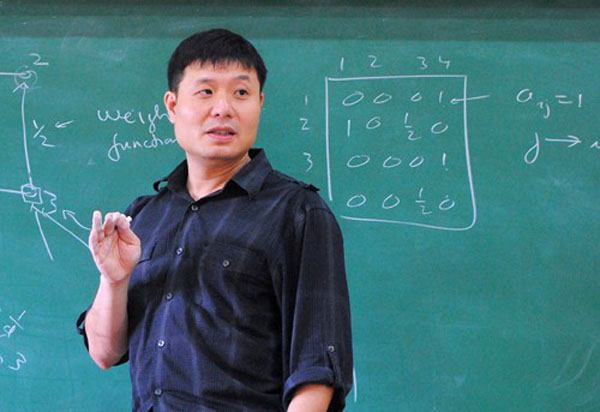 2
1/2
weigh
function
3
1 2 3 4
1 0 0 0 1
2 1 0 1/2 0
3 0 0 0 1
0 0 1/2 0
a_ij = 1
j →
3